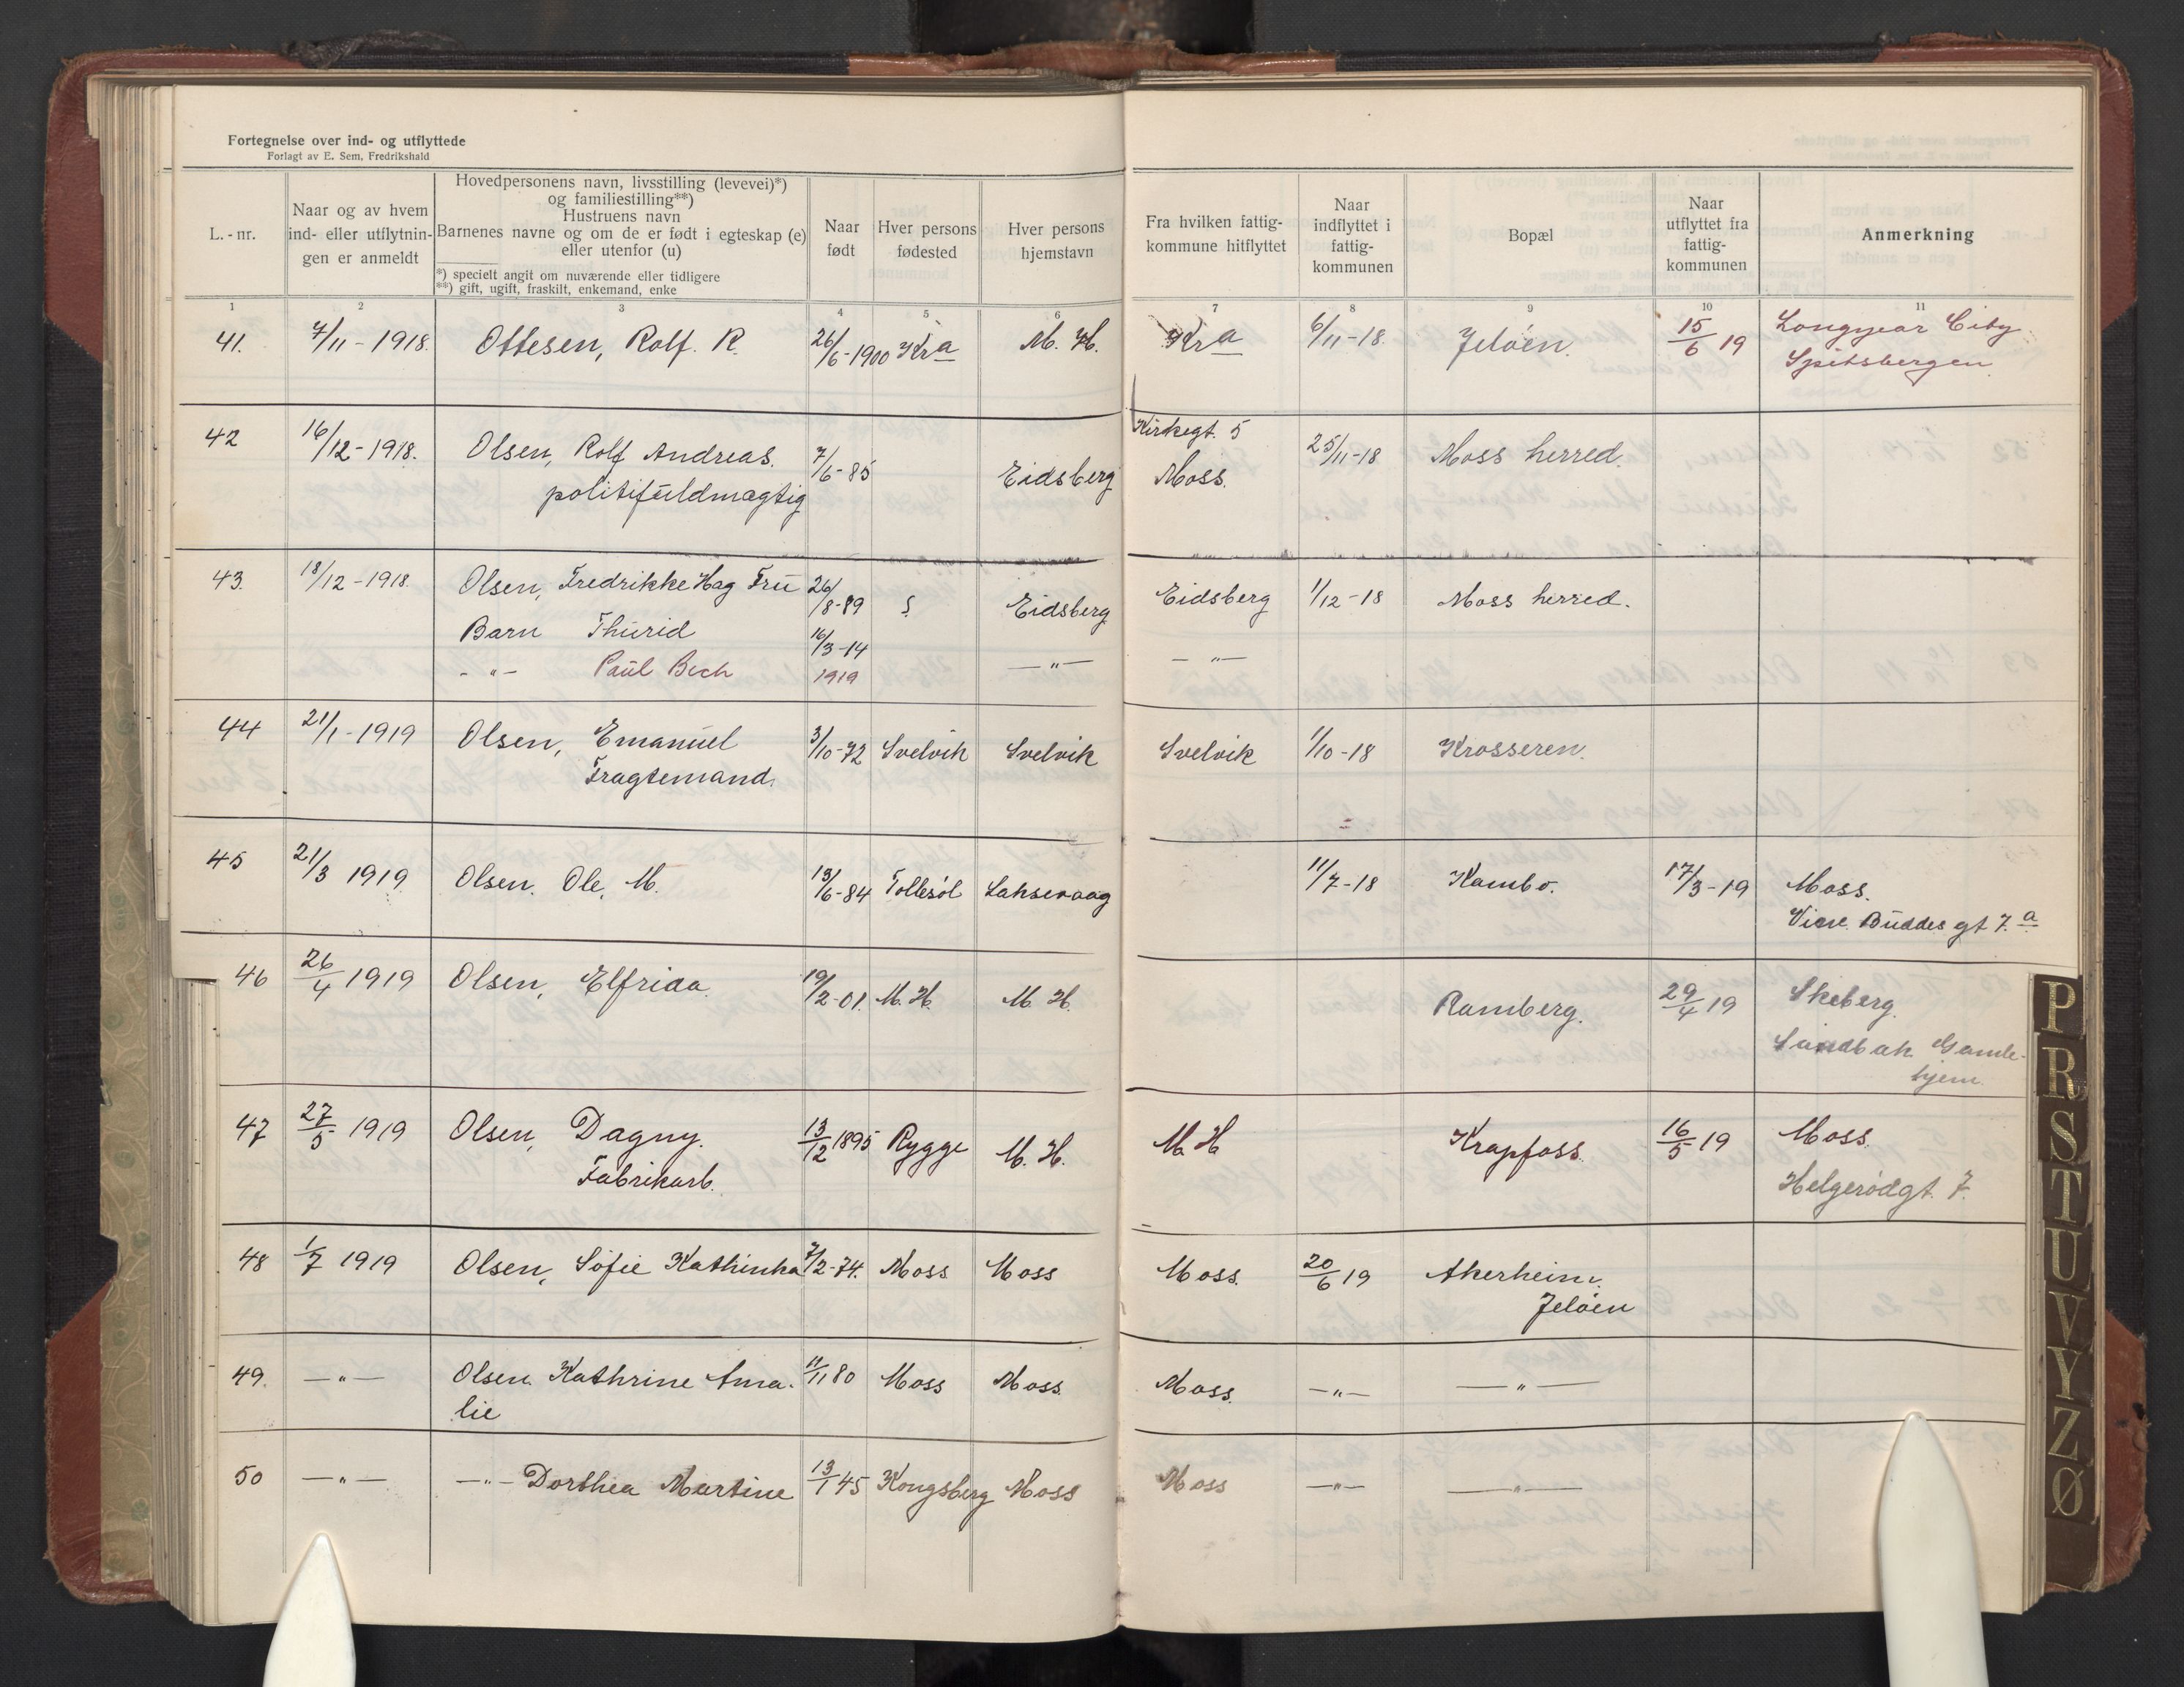 Fortegnelse over ind- og utflyttede
Forlagt av E. Sem, Fredrikshald
L.-nr.
Naar og av hvem ind- eller utflytnin- gen er anmeldt
Hovedpersonens navn, livsstilling (levevei)*) og familiestilling**) Hustruens navn Barnenes navne og om de er født i egteskap (e) eller utenfor (u)
*) specielt angit om nuværende eller tidligere
**) gift, ugift, fraskilt, enkemand, enke
Naar født
Hver persons fødested
Hver persons hjemstavn
Fra hvilken fattig- kommune hitflyttet
Naar indflyttet i fattig- kommunen
Bopæl
Naar utflyttet fra fattig- kommunen
Anmerkning
1 2 3 4 5 6 7 8 9 10 11
41. 7/11-1918. Ottesen, Rolf. R. 26/6-1900 Kra M. H. Kra 6/11-18. Jeløen. 15/6 19 Longyear City
Spitsbergen.
42 16/12-1918. Olsen, Rolf Andreas. 7/6-85 Eidsberg Kirkegt. 5 25/11-18 Moss herred.
politifuldmægtig Moss.
43. 18/12-1918. Olsen, Fredrikke Hag Fru 26/8-89 Eidsberg Eidsberg 1/12-18 Moss herred.
Barn Thurid 16/3-14
-"- Paul Bech 1919 -"- -"-
44 21/1-1919 Olsen, Emanuel 3/10-72 Svelvik Svelvik Svelvik 1/10-18 Krosseren.
Fragtemand.
45 21/3 1919 Olsen. Ole, M. 13/6-84 Laksevaag 11/7-18 Kambo. 17/3-19 Moss.
Buddes gt 7. a
46 26/4 1919 Olsen, Elfrida. 19/2-01. M. H. M. H. Ramberg. 29/4 19 Skeberg.
Sandbak Gamle-
hjem.
47 27/5 1919 Olsen, Dagny. 13/12 1895 Rygge M. H. M. H Krapfoss. 16/5 19 Moss.
Fabrikarb. Helgerødgt. 7.
48 1/7 1919 Olsen, Sofie Kathinka 7/2-74. Moss Moss Moss. 20/6 19 Akerheim.
Jeløen
49. -"- Olsen. Kathrine Ama-
lie 11/11 80 Moss Moss. Moss. -"- -"-
50 -"- -"- Dorthea Martine 13/1 45 Kongsberg Moss Moss -"- -"-
P
R
S
T
U
V
Y
Z
Ø